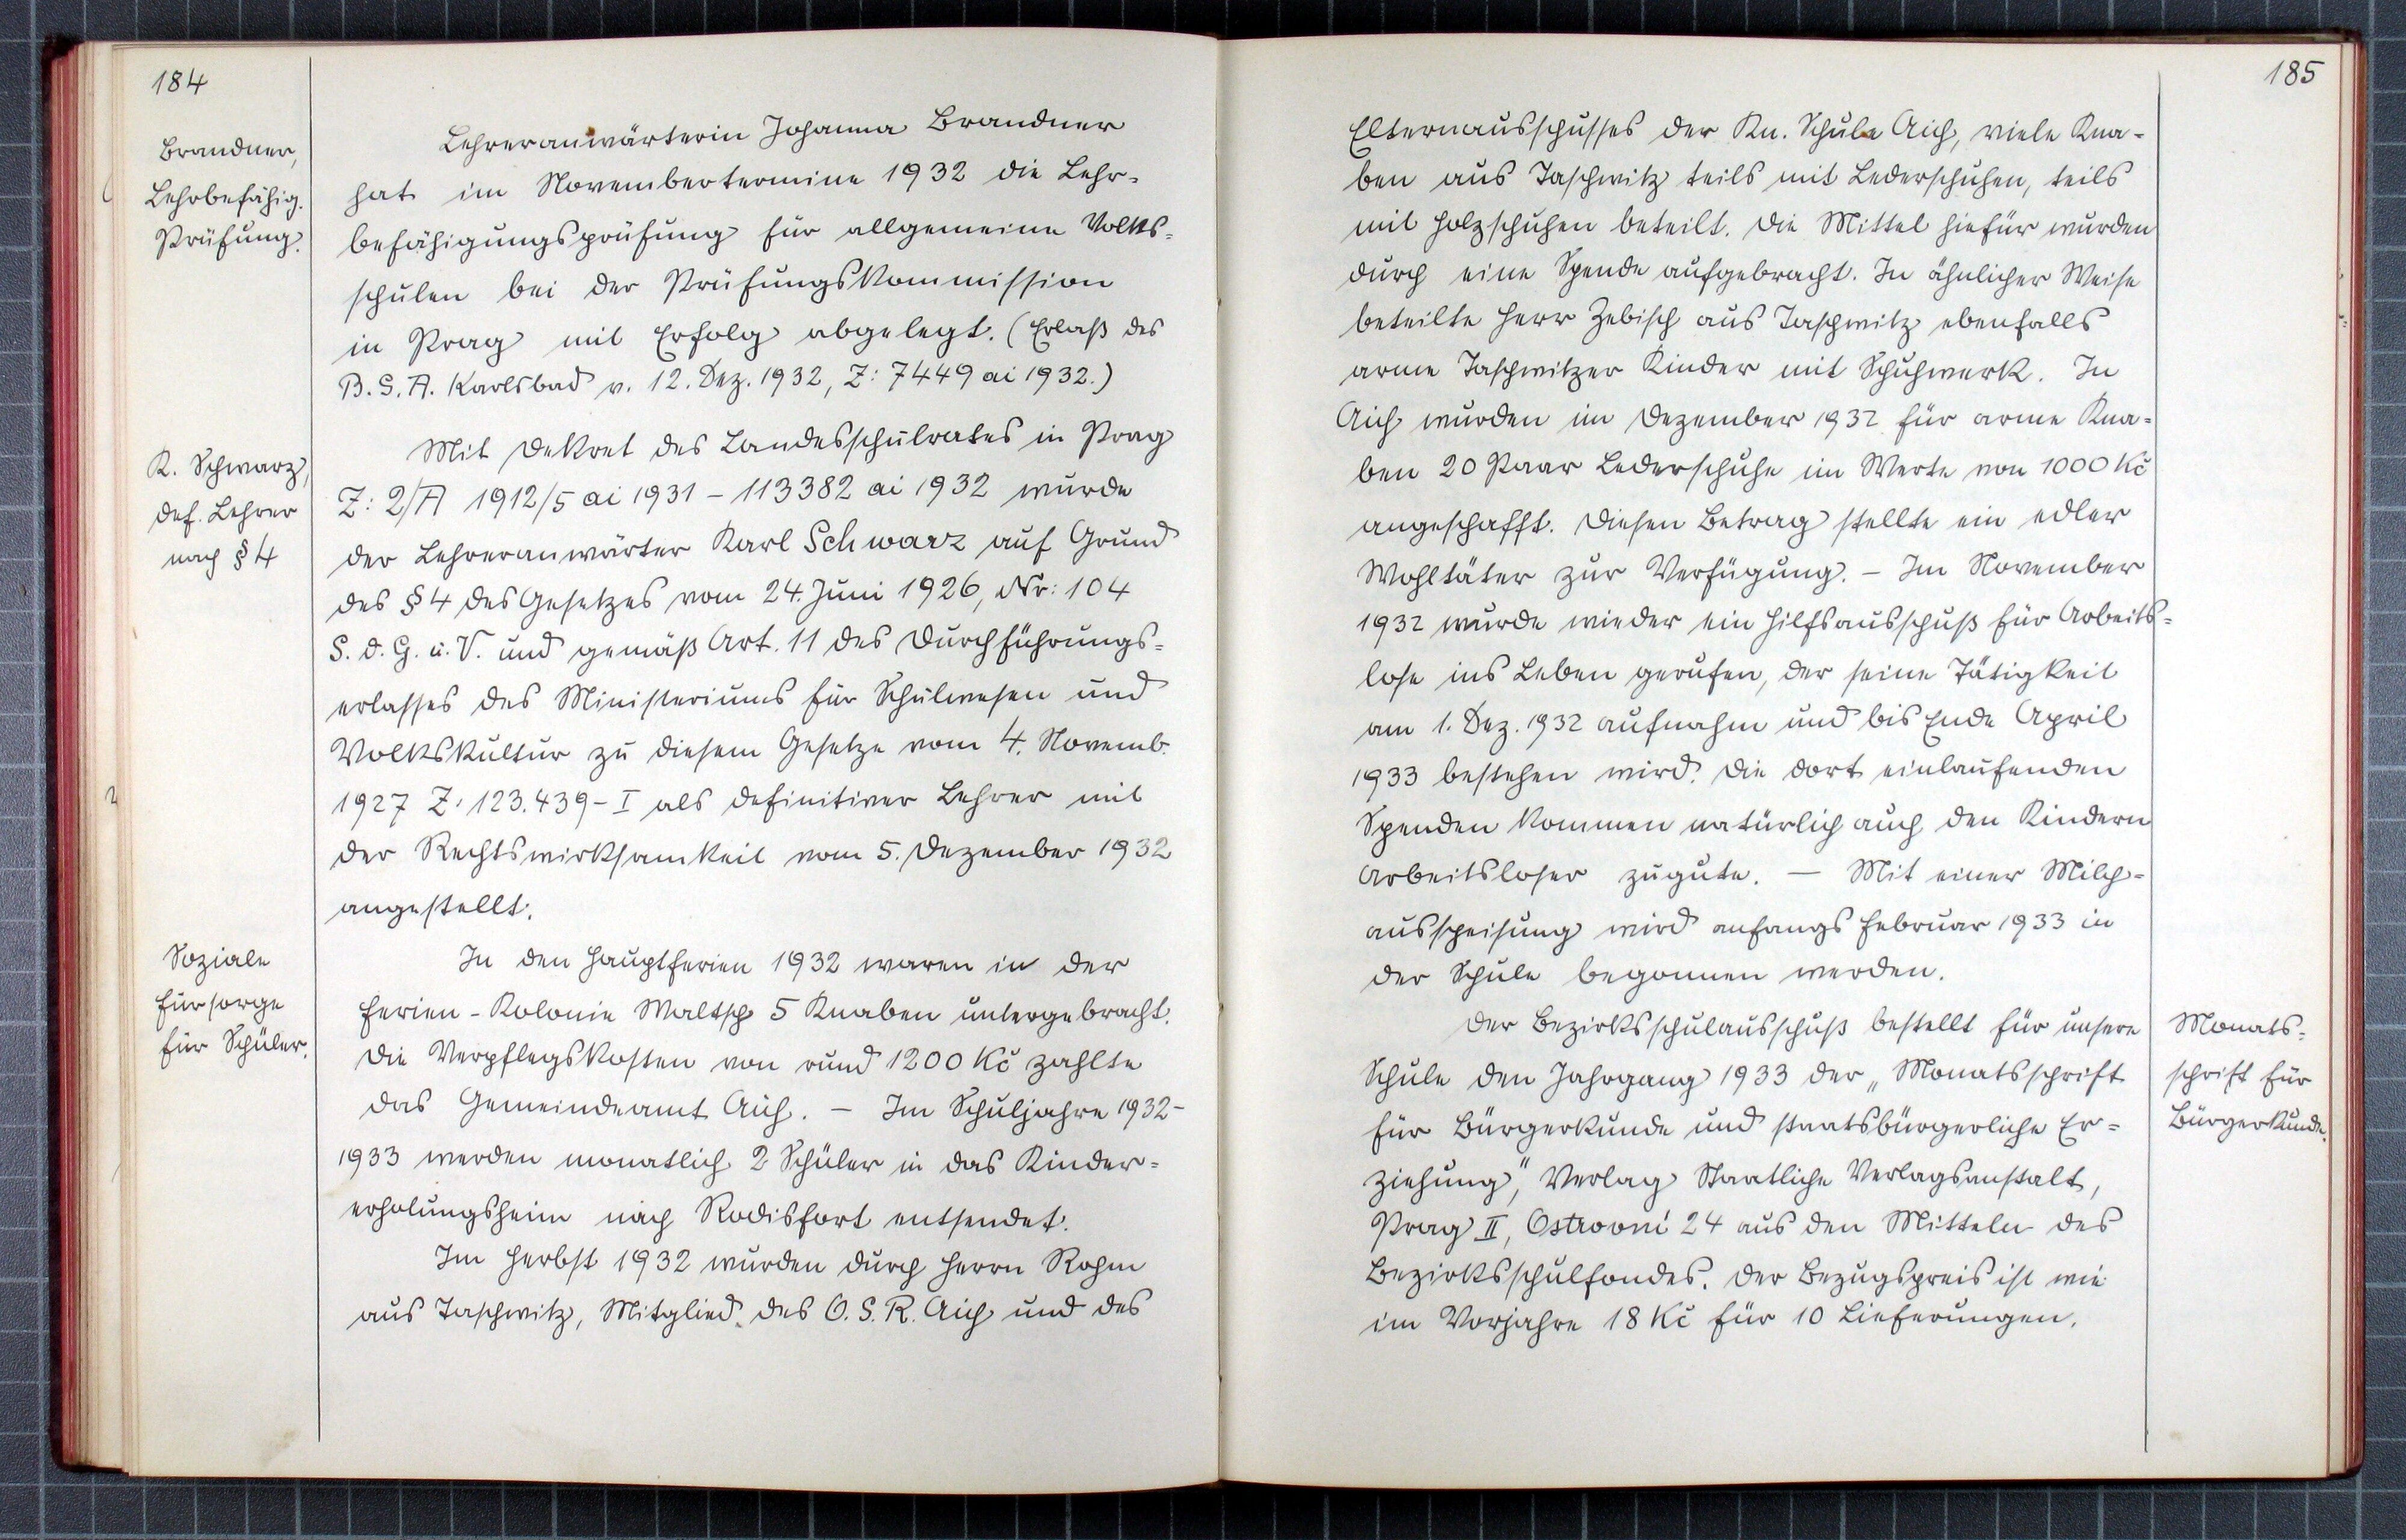 184
Brandner,
Lehrbefähig.
Prüfung.
Lehreranwärterin Johanna Brandner
hat im Novembertermine 1932 die Lehr-
befähigungsprüfung für allgemeine Volks-
schulen bei der Prüfungskommission
in Prag mit Erfolg abgelegt. (Erlaß des
B.S.A. Karlsbad v. 12. Dez. 1932, Z: 7449 ai 1932.)
K. Schwarz,
def. Lehrer
nach § 4
Mit Dekret des Landesschulrates in Prag
Z: 2/A 1912/5 ai 1931 – 113382 ai 1932 wurde
der Lehreranwärter Karl Schwarz auf Grund
des § 4 des Gesetzes vom 24. Juni 1926, Nr: 104
S. d. G. u. V. und gemäß Art. 11 des Durchführungs-
erlasses des Ministeriums für Schulwesen und
Volkskultur zu diesem Gesetze vom 4. Novemb.
1927 Z: 123.439 – I als definitiver Lehrer mit
der Rechtswirksamkeit vom 5. Dezember 1932
angestellt.
Soziale
Fürsorge
für Schüler.
In den Hauptferien 1932 waren in der
Ferien-Kolonie Maltsch 5 Knaben untergebracht.
Die Verpflegskosten von rund 1200 Kč zahlte
das Gemeindeamt Aich. – Im Schuljahre 1932-
1933 werden monatlich 2 Schüler in das Kinder-
erholungsheim nach Rodisfort entsendet.
Im Herbst 1932 wurden durch Herrn Rohm
aus Taschwitz, Mitglied des O.S.R. Aich und des
185
Elternausschusses der Kn. Schule Aich, viele Kna-
ben aus Taschwitz teils mit Lederschuhen, teils
mit Holzschuhen beteilt. Die Mittel hiefür wurden
durch eine Spende aufgebracht. In ähnlicher Weise
beteilte Herr Zebisch aus Taschwitz ebenfalls
arme Taschwitzer Kinder mit Schuhwerk. In
Aich wurden im Dezember 1932 für arme Kna-
ben 20 Paar Lederschuhe im Werte von 1000 Kč
angeschafft. Diesen Betrag stellte ein edler
Wohltäter zur Verfügung. – Im November
1932 wurde wieder ein Hilfsausschuß für Arbeits-
lose ins Leben gerufen, der seine Tätigkeit
am 1. Dez. 1932 aufnahm und bis Ende April
1933 bestehen wird. Die dort einlaufenden
Spenden kommen natürlich auch den Kindern
Arbeitsloser zugute. – Mit einer Milch-
ausspeisung wird anfangs Februar 1933 in
der Schule begonnen werden.
Der Bezirksschulausschuß bestellt für unsere
Schule den Jahrgang 1933 der „Monatsschrift
für Bürgerkunde und staatsbürgerliche Er-
ziehung", Verlag Staatliche Verlagsanstalt,
Prag II, Ostrovní 24 aus den Mitteln des
Bezirksschulfondes. Der Bezugspreis ist wie
im Vorjahre 18 Kč für 10 Lieferungen.
Monats-
schrift für
Bürgerkunde.